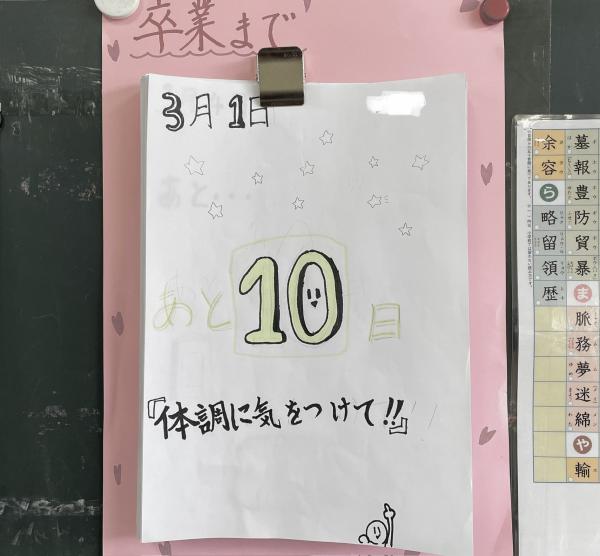 卒業まで
3月1日
あと・・・
あと10日
『体調に気をつけて!!』
墓報豊防貿暴
ま
脈務夢迷綿
や
輸
余容
ら
略留領歴